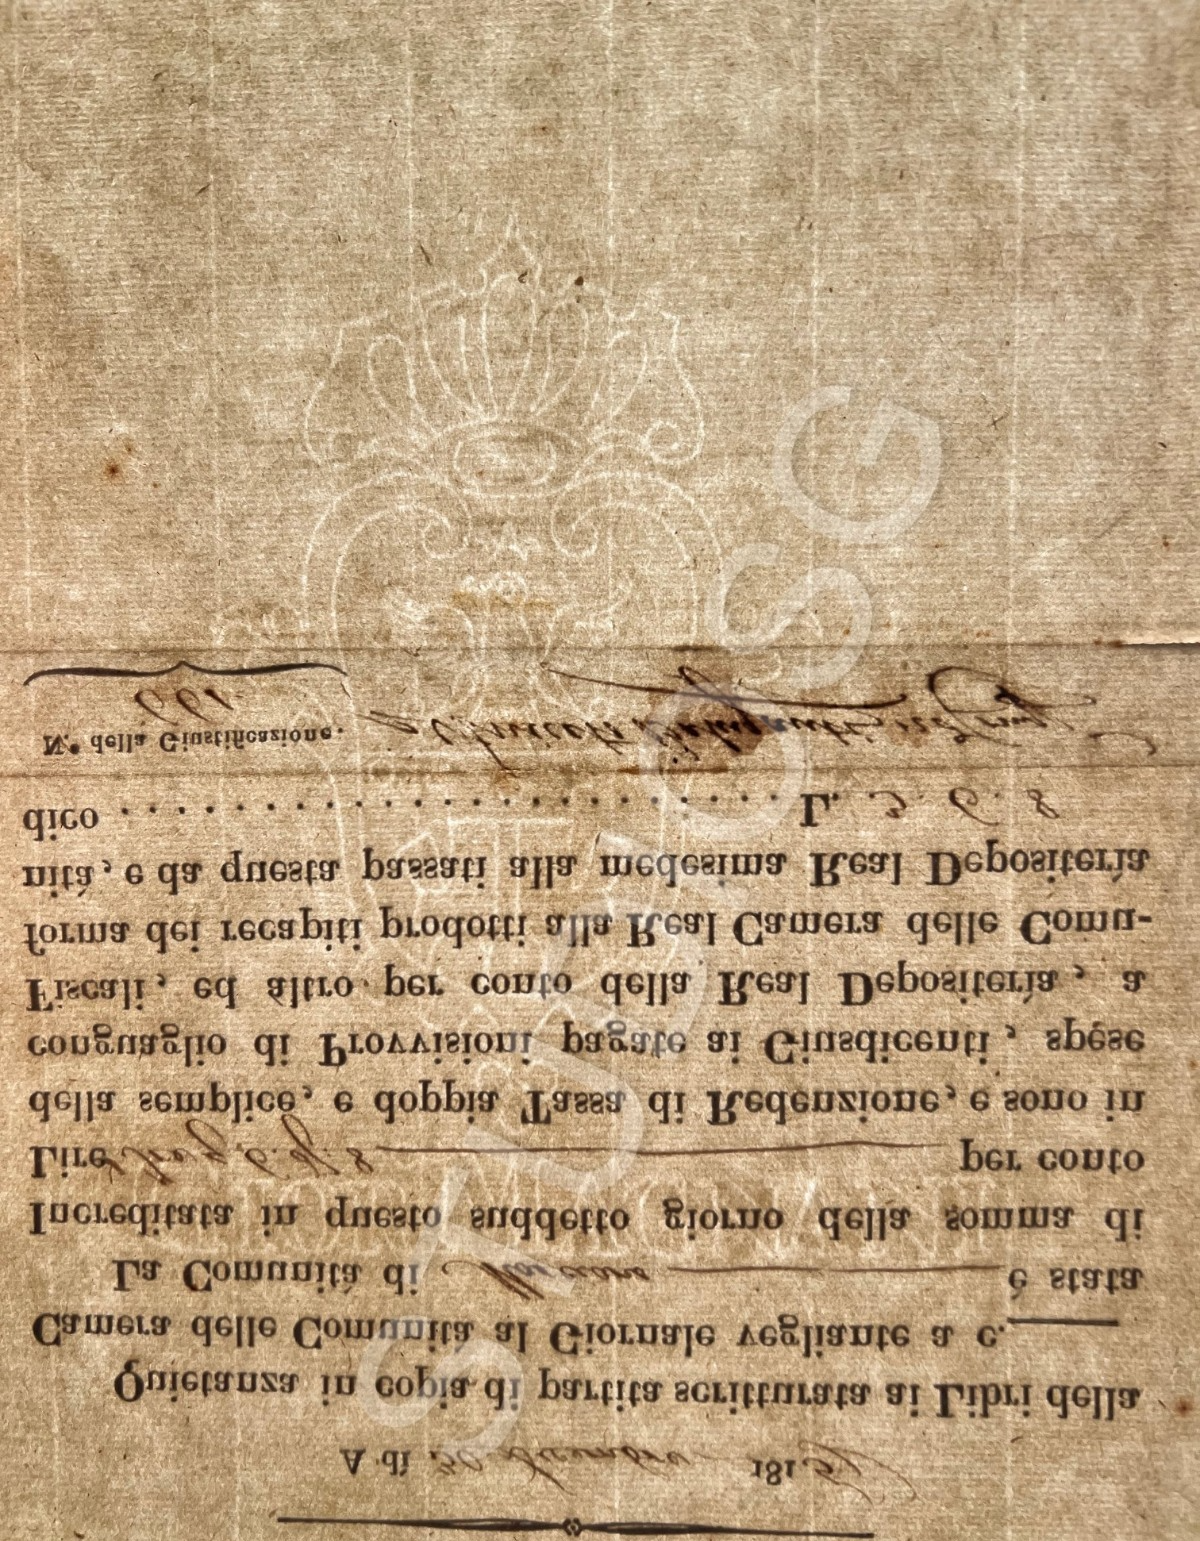 A dì 30 Dicembre 1815
Quietanza in copia di partita scritturata ai Libri della
Camera delle Comunità al Giornale vegliante a c.
La Comunità di Marciano è stata
Increditata in questo suddetto giorno della somma di
Lire tre, 6. d. 8 per conto
della semplice, e doppia Tassa di Redenzione, e sono in
conguaglio di Provvisioni pagate ai Giusdicenti, spese
Fiscali, ed altro per conto della Real Depositerìa, a
forma dei recapiti prodotti alla Real Camera delle Comu-
nità, e da questa passati alla medesima Real Depositerìa
dico . . . . . . . . . . . . . . . . . . . . . . . L. 3. 6. 8
N.° della Giustificazione.
661.
STUDIOSG